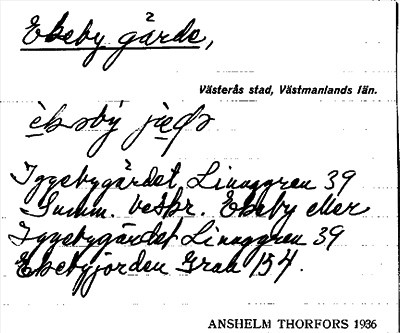 Ekeby gärde,
Västerås stad, Västmanlands län.
Iggebygärdet Linnggren 39
Summ. Ekeby eller
Iggebygärdet Linnggren 39
Ekebyjorden Grau 154.
ANSHELM THORFORS 1936